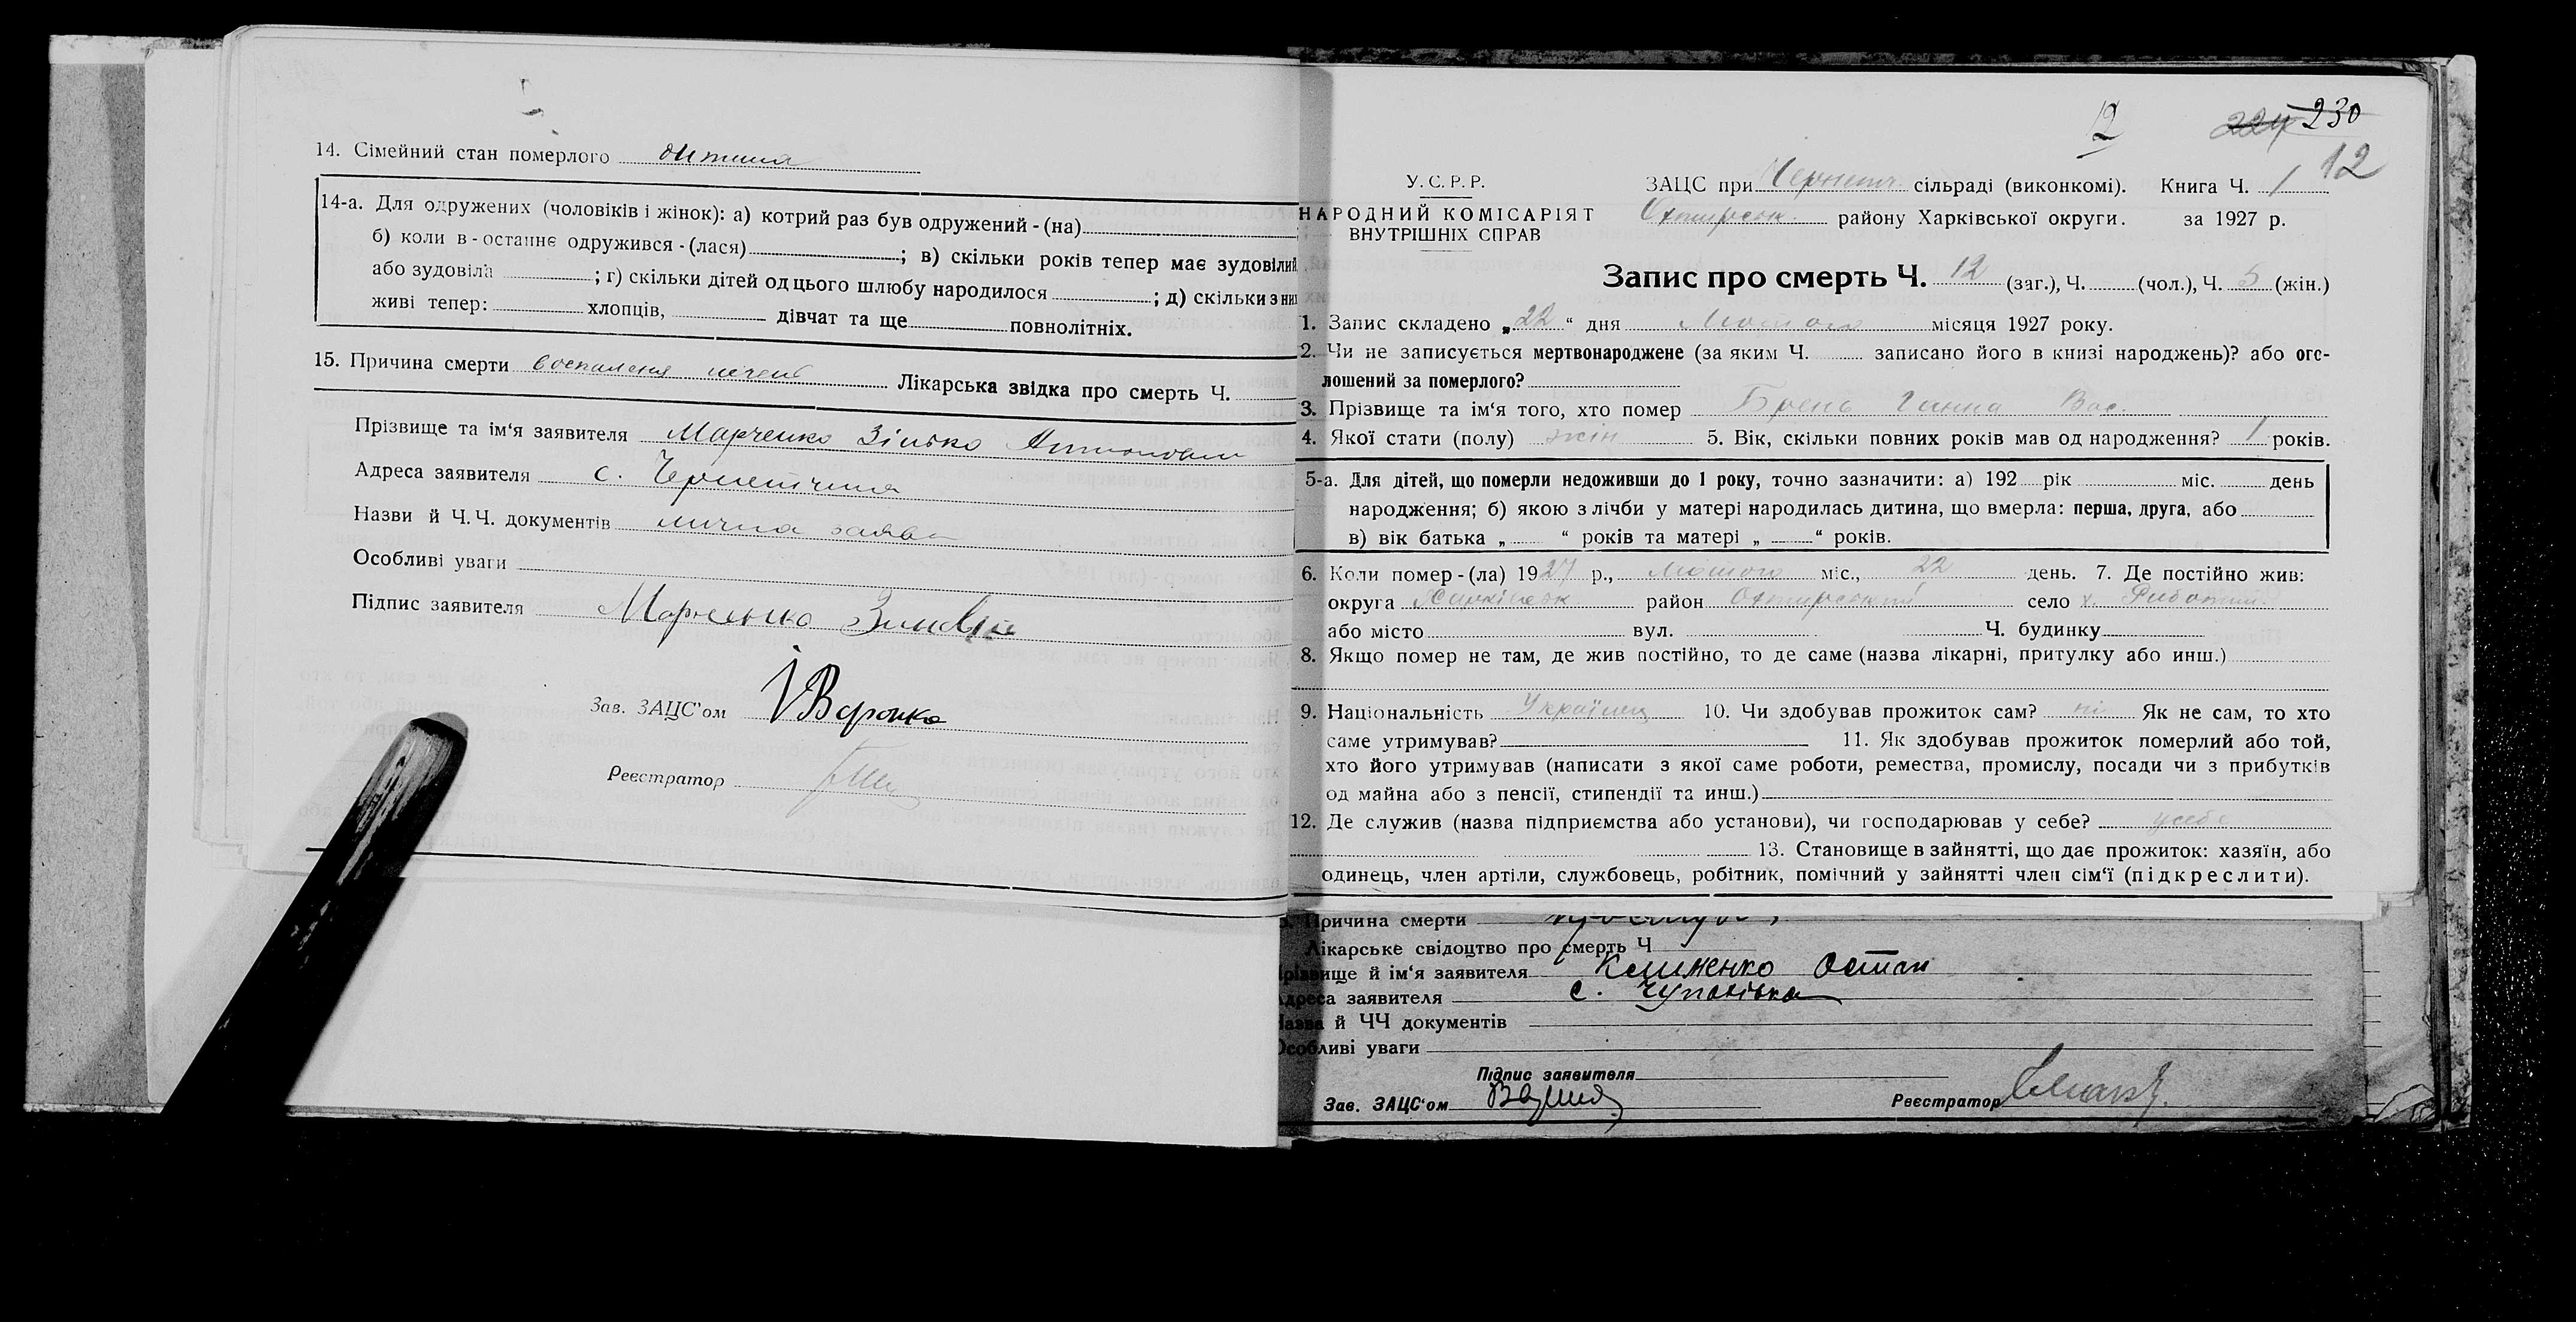 14. Сімейний стан померлого дитина
14-а. Для одружених (чоловіків і жінок): а) котрий раз був одружений - (на)
б) коли в-останнє одружився - (лася) ; в) скільки років тепер має зудовілий
або зудовіла ; г) скільки дітей од цього шлюбу народилося ; д) скільки з ни
живі тепер: хлопців, дівчат та ще повнолітніх.
15. Причина смерти воспаления Лікарська звідка про смерть Ч.
Прізвище та ім'я заявителя Марченко Зінько
Адреса заявителя с. Чернетчина
Назви й Ч.Ч. документів лична заява
Особливі уваги
Підпис заявителя Марченко
Зав. ЗАЦС'ом
Реєстратор
12
224 230
12
У.С.Р.Р.
НАРОДНИЙ КОМІСАРІЯТ
ВНУТРІШНІХ СПРАВ
ЗАЦС при Чернетч. сільраді (виконкомі). Книга Ч. 1
Охтирськ. району Харківської округи. за 1927 р.
Запис про смерть Ч. 12 (заг.), Ч. (чол.), Ч. 5 (жін.)
1. Запис складено „22“ дня Лютого місяця 1927 року.
2. Чи не записується мертвонароджене (за яким Ч. записано його в книзі народжень)? або ого-
лошений за померлого?
3. Прізвище та ім'я того, хто помер Брень Ганна Вас.
4. Якої стати (полу) жін 5. Вік, скільки повних років мав од народження? 1 років.
5-а. Для дітей, що померли недоживши до 1 року, точно зазначити: а) 192 рік міс. день
народження; б) якою з лічби у матері народилась дитина, що вмерла: перша, друга, або
в) вік батька „ “ років та матері „ “ років.
6. Коли помер - (ла) 1927 р., Лютого міс., 22 день. 7. Де постійно жив:
округа Харківськ район Охтирський село х.
або місто вул. Ч. будинку
8. Якщо помер не там, де жив постійно, то де саме (назва лікарні, притулку або инш.)
9. Національність Українец 10. Чи здобував прожиток сам? ні Як не сам, то хто
саме утримував? 11. Як здобував прожиток померлий або той,
хто його утримував (написати з якої саме роботи, ремества, промислу, посади чи з прибутків
од майна або з пенсії, стипендії та инш.)
12. Де служив (назва підприємства або установи), чи господарював у себе? у себе
13. Становище в зайнятті, що дає прожиток: хазяїн, або
одинець, член артіли, службовець, робітник, помічний у зайнятті член сім'ї (підкреслити).
Причина смерти
Лікарське свідоцтво про смерть Ч
Прізвище й ім'я заявителя Клименко Остап
Адреса заявителя с. Чупахівка
Назва й ЧЧ документів
Особливі уваги
Підпис заявителя
Зав. ЗАЦС'ом Реєстратор